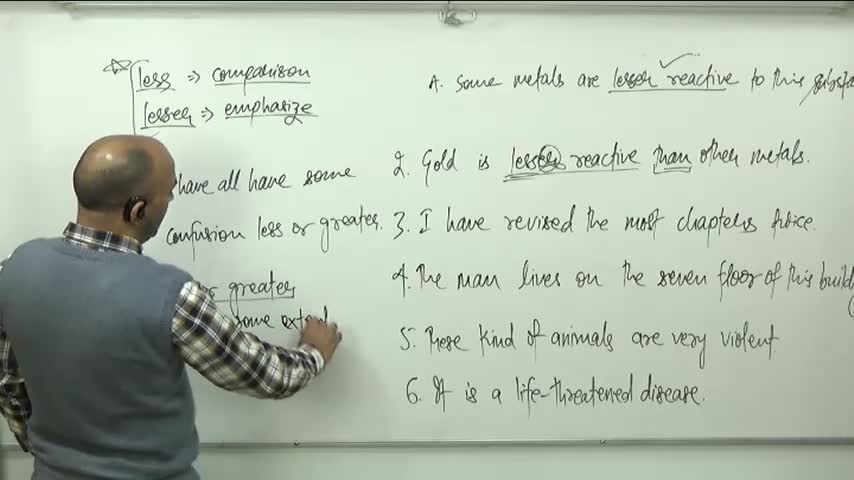 less => comparison
lesser => emphasize
have all have some
confusion less or greater.
or greater
some extent
A. Some metals are lesser reactive to this
2. Gold is lesser reactive than other metals.
3. I have revised the most chapters twice.
4. The man lives on the seven floor of this build
5. These kind of animals are very violent
6. It is a life-threatened disease.